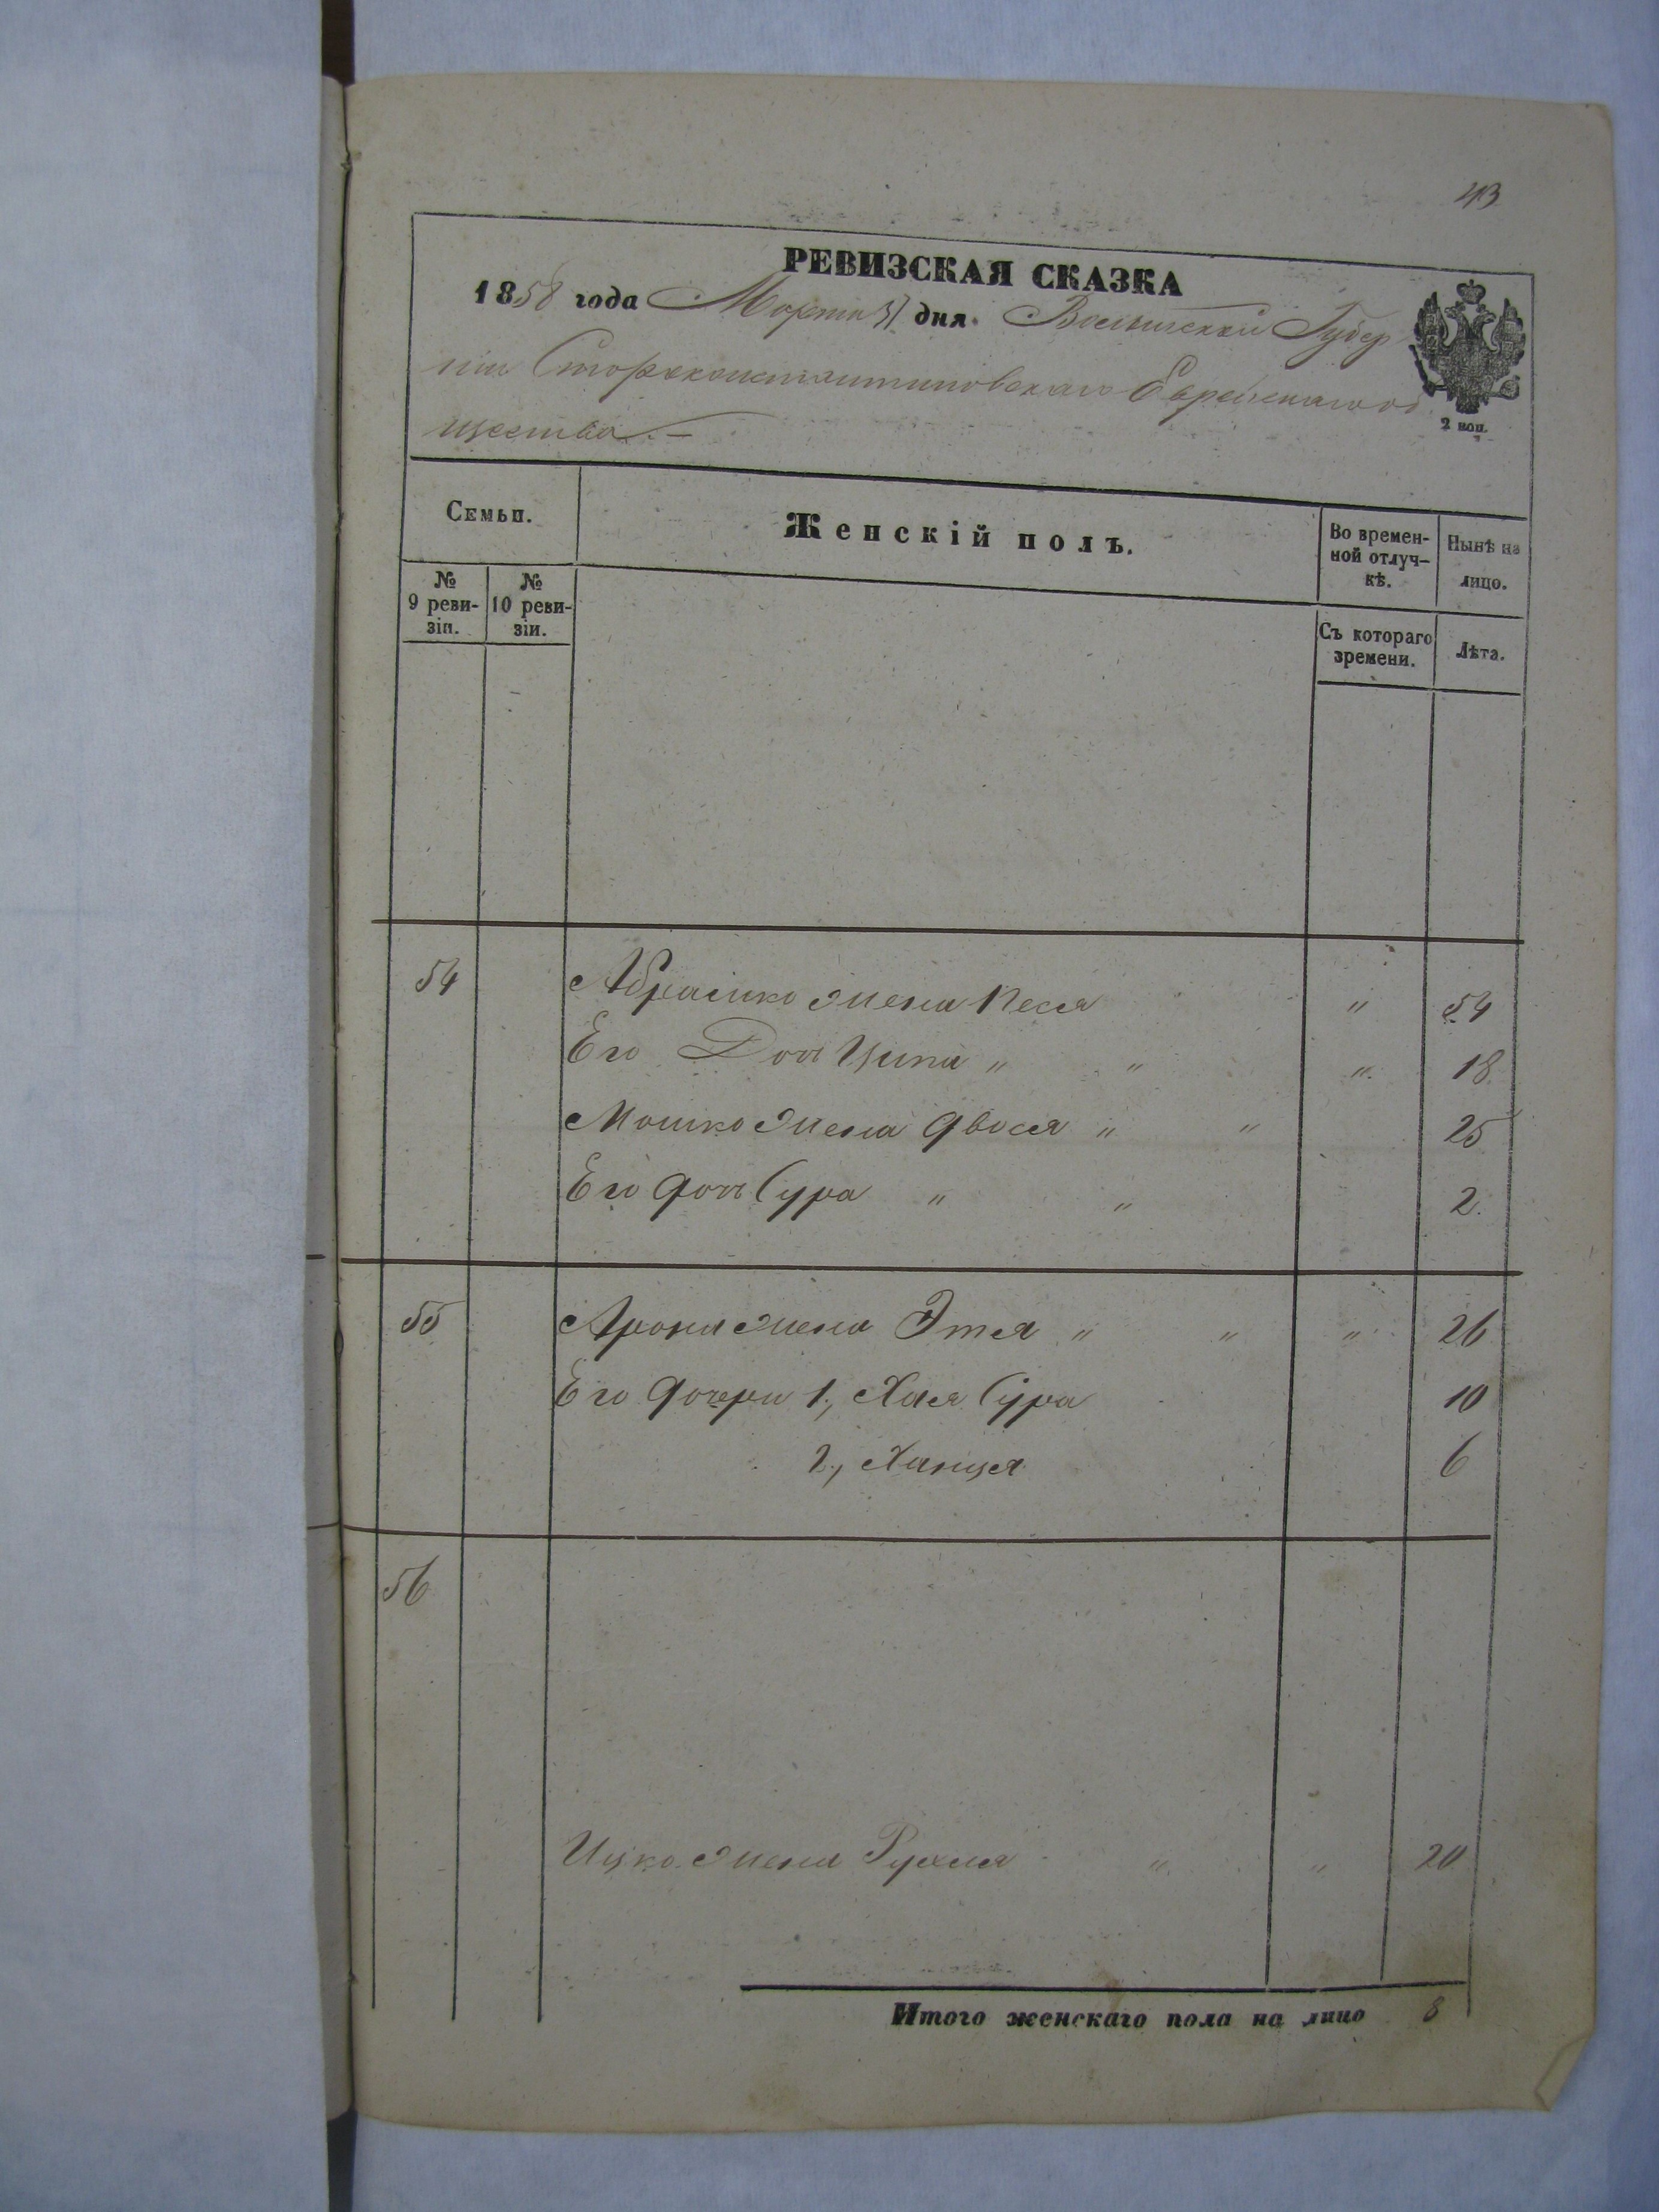 43
РЕВИЗСКАЯ СКАЗКА
1858 года Марта 31 дня. Волынской Губер
ніи Староконстантиновскаго Еврейскаго об
щества.—
2 коп.
Семьи.
Женскій полъ.
Во времен-
ной отлуч-
кѣ.
Нынѣ на
лицо.
№
9 реви-
зіи.
№
10 реви-
зіи.
Съ котораго
времени.
Лѣта.
54 Абрамко жена Песя " 54
Его Дочь Ципа " " " 18
Мошко жена Двося " " 25
Его дочь Сура " " 2.
55 Арона жена Этея " " " 26
Его дочери 1, Хая Сура 10
2, Ханця 6
56
Ицко жена Рухля " " 20
Итого женскаго пола на лицо 8